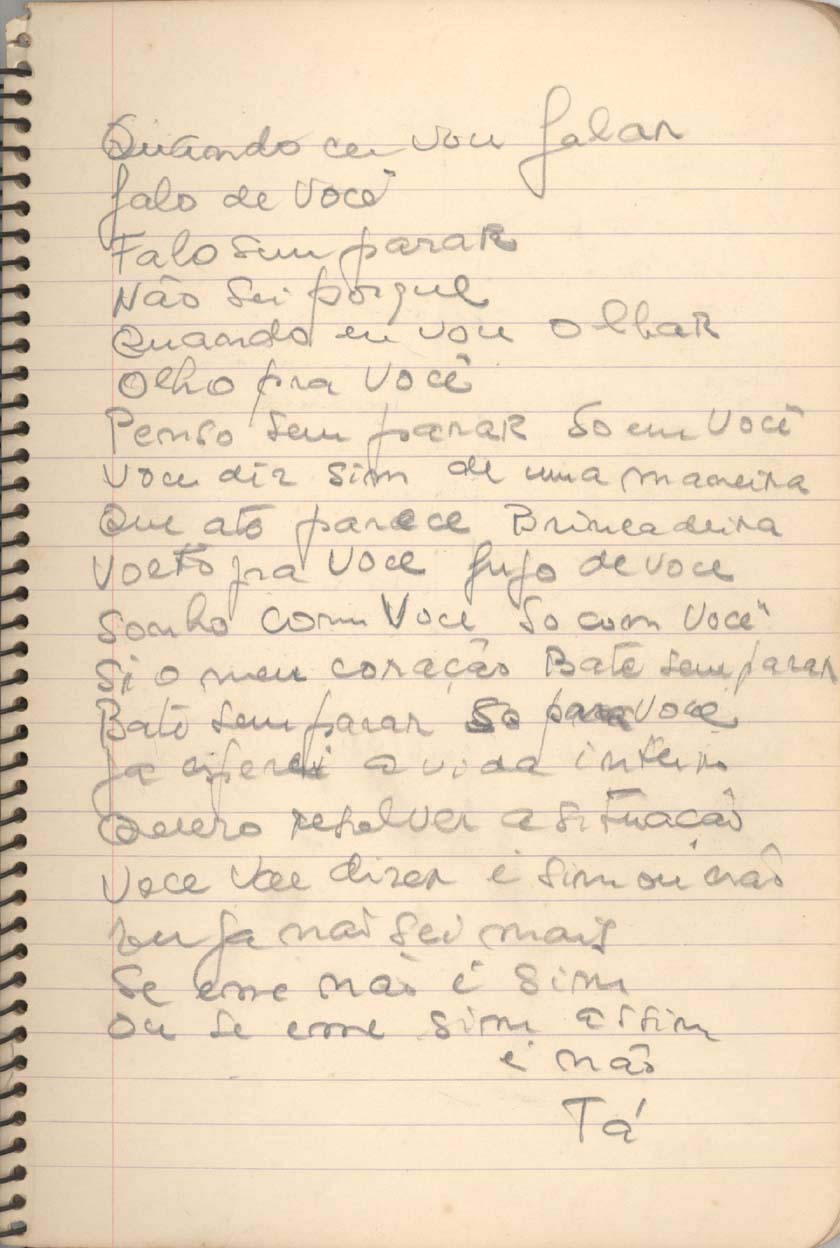 Quando eu vou falar
falo de você
Falo sem parar
Não sei porque
Quando eu vou olhar
Olho pra você
Penso sem parar So em você
Voce diz sim de uma maneira
Que até parece Brincadeira
Volto pra voce fujo de voce
Sonho com Voce So com você
Si o meu coração Bate sem parar
Bate sem parar So para voce
Ja esperei a vida inteira
Quero resolver a situação
Voce vae dizer é sim ou não
Eu ja não sei mais
Se esse não é sim
Ou se esse sim assim
é não
Tá